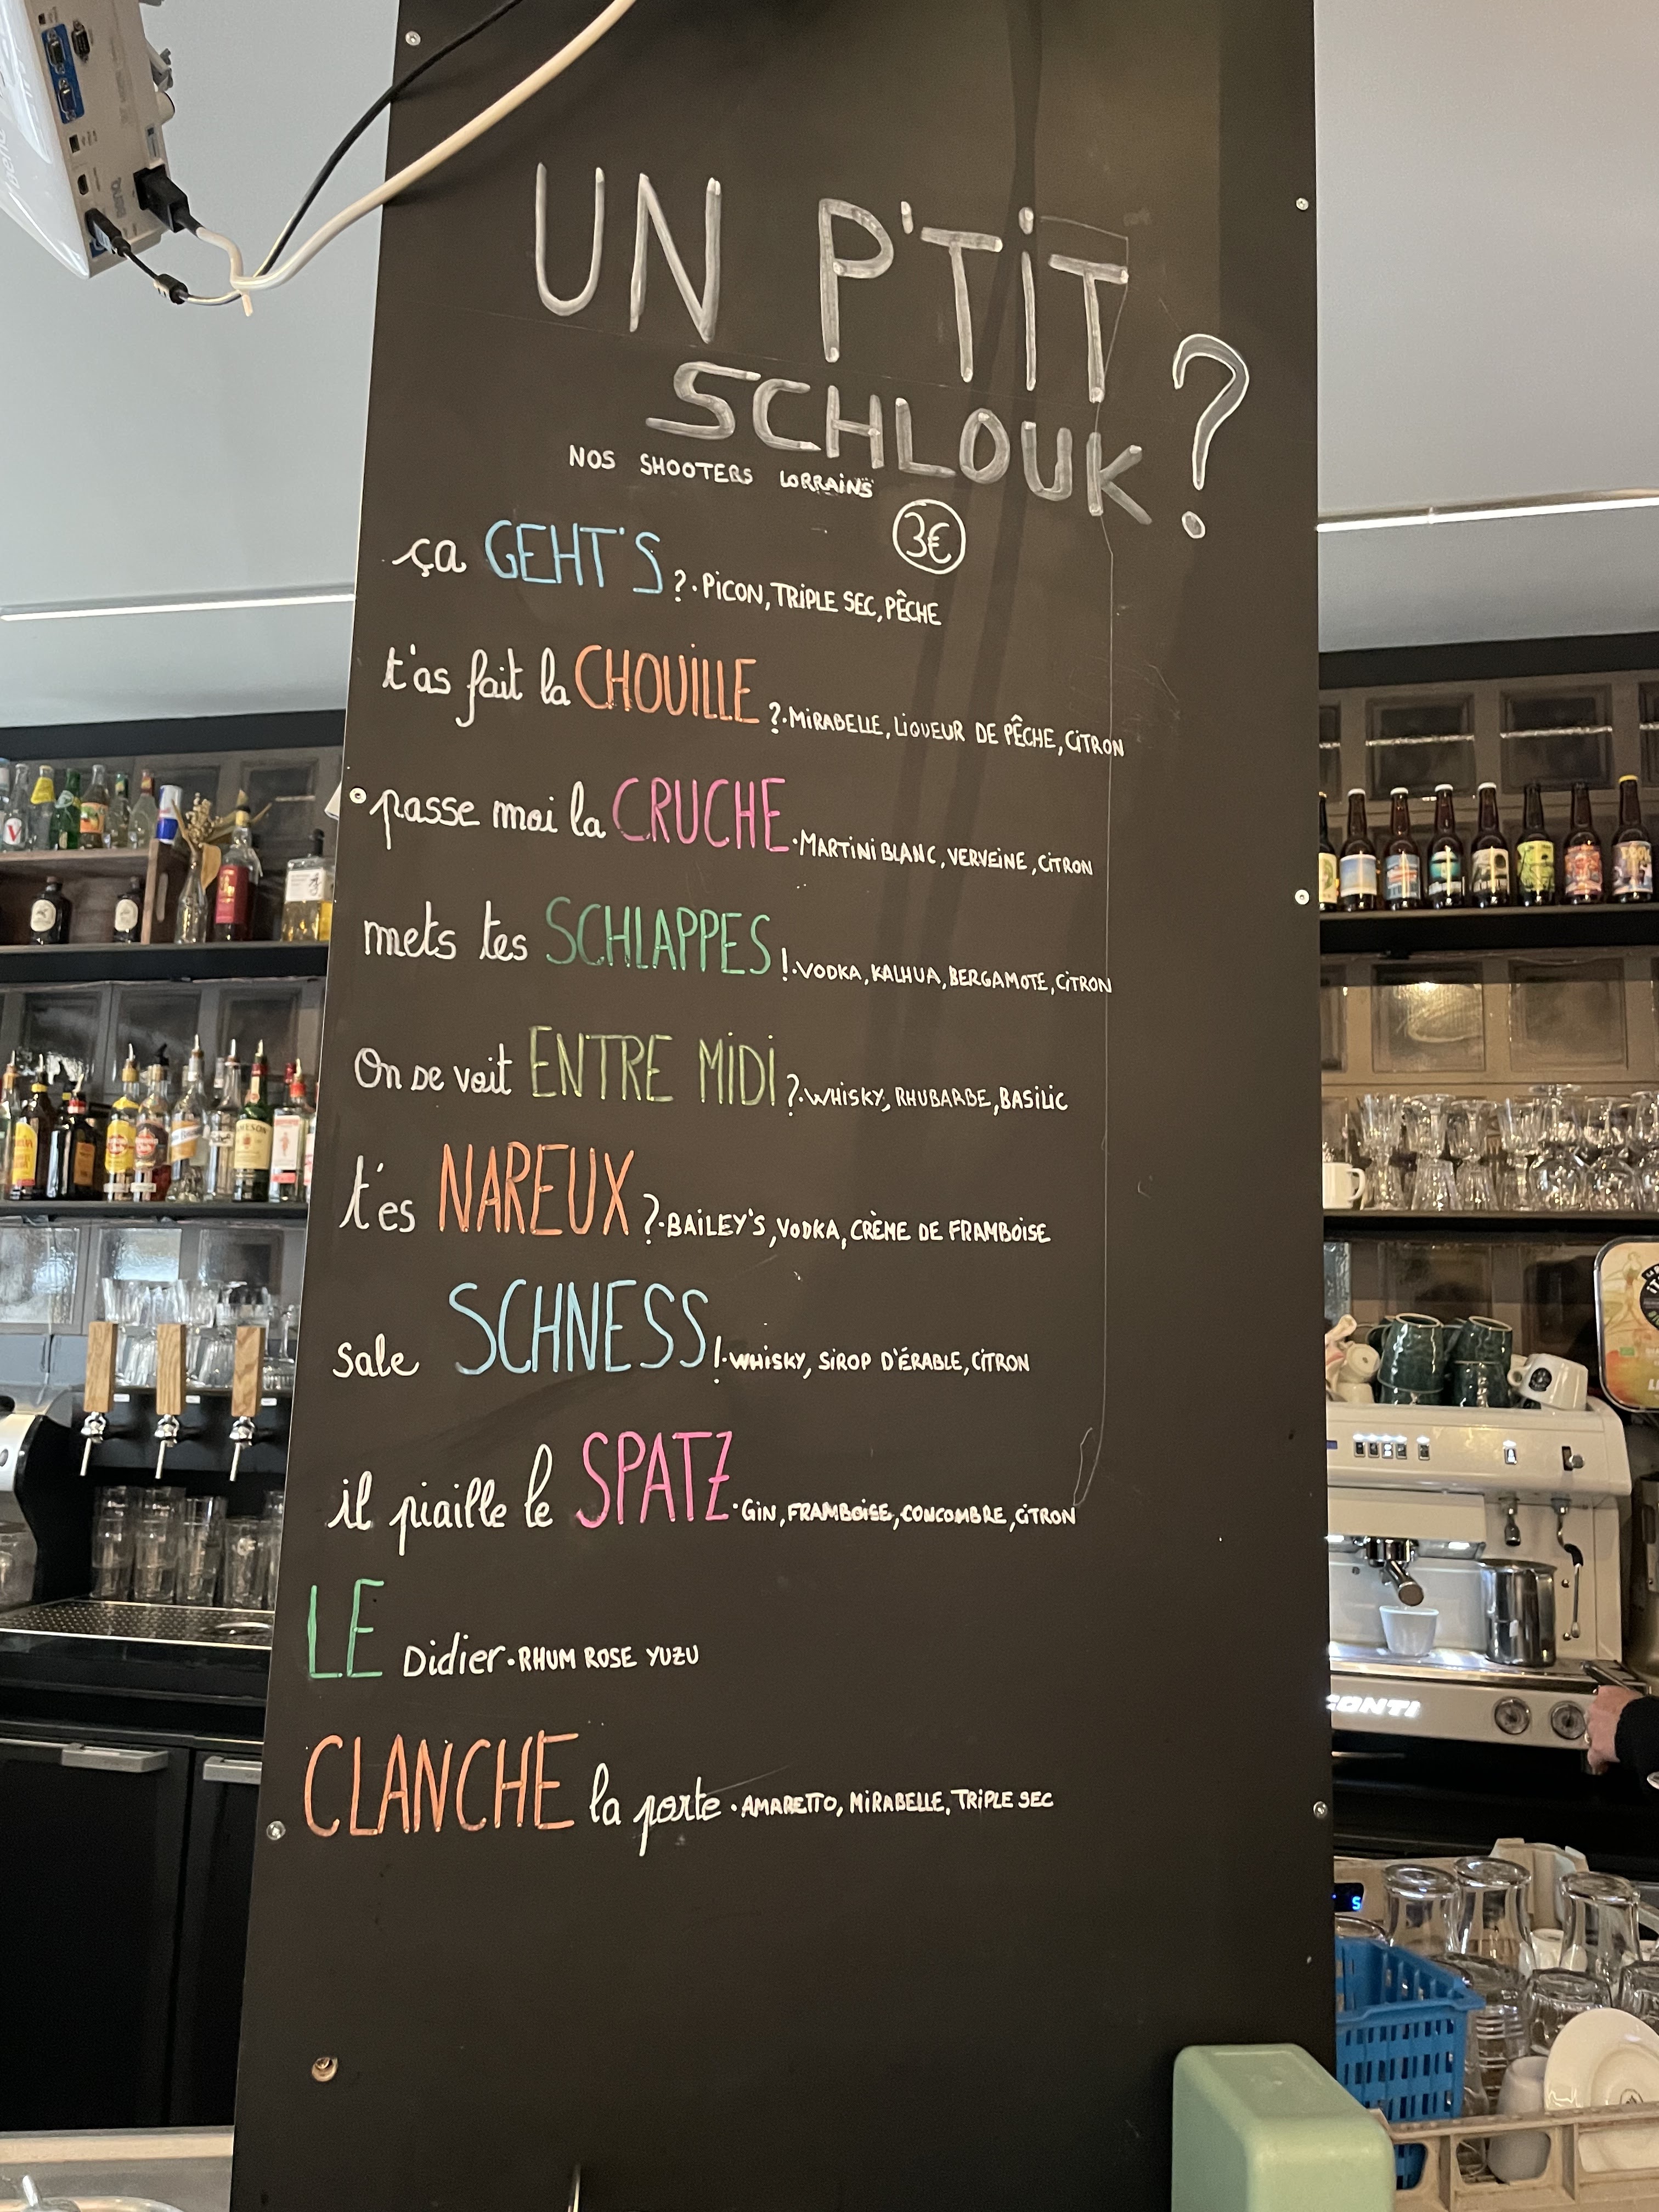 UN P'TIT
SCHLOUK ?
NOS SHOOTERS LORRAINS
3€
ça GEHT'S ?·PICON, TRIPLE SEC, PÊCHE
t'as fait la CHOUILLE ?·MIRABELLE, LIQUEUR DE PÊCHE, CITRON
passe moi la CRUCHE·MARTINI BLANC, VERVEINE, CITRON
mets tes SCHLAPPES !·VODKA, KALHUA, BERGAMOTE, CITRON
On se voit ENTRE MIDI ?·WHISKY, RHUBARBE, BASILIC
t'es NAREUX ?·BAILEY'S, VODKA, CRÈME DE FRAMBOISE
sale SCHNESS !·WHISKY, SIROP D'ÉRABLE, CITRON
il piaille le SPATZ·GIN, FRAMBOISE, CONCOMBRE, CITRON
LE Didier·RHUM ROSE YUZU
CLANCHE la porte·AMARETTO, MIRABELLE, TRIPLE SEC
CONTI